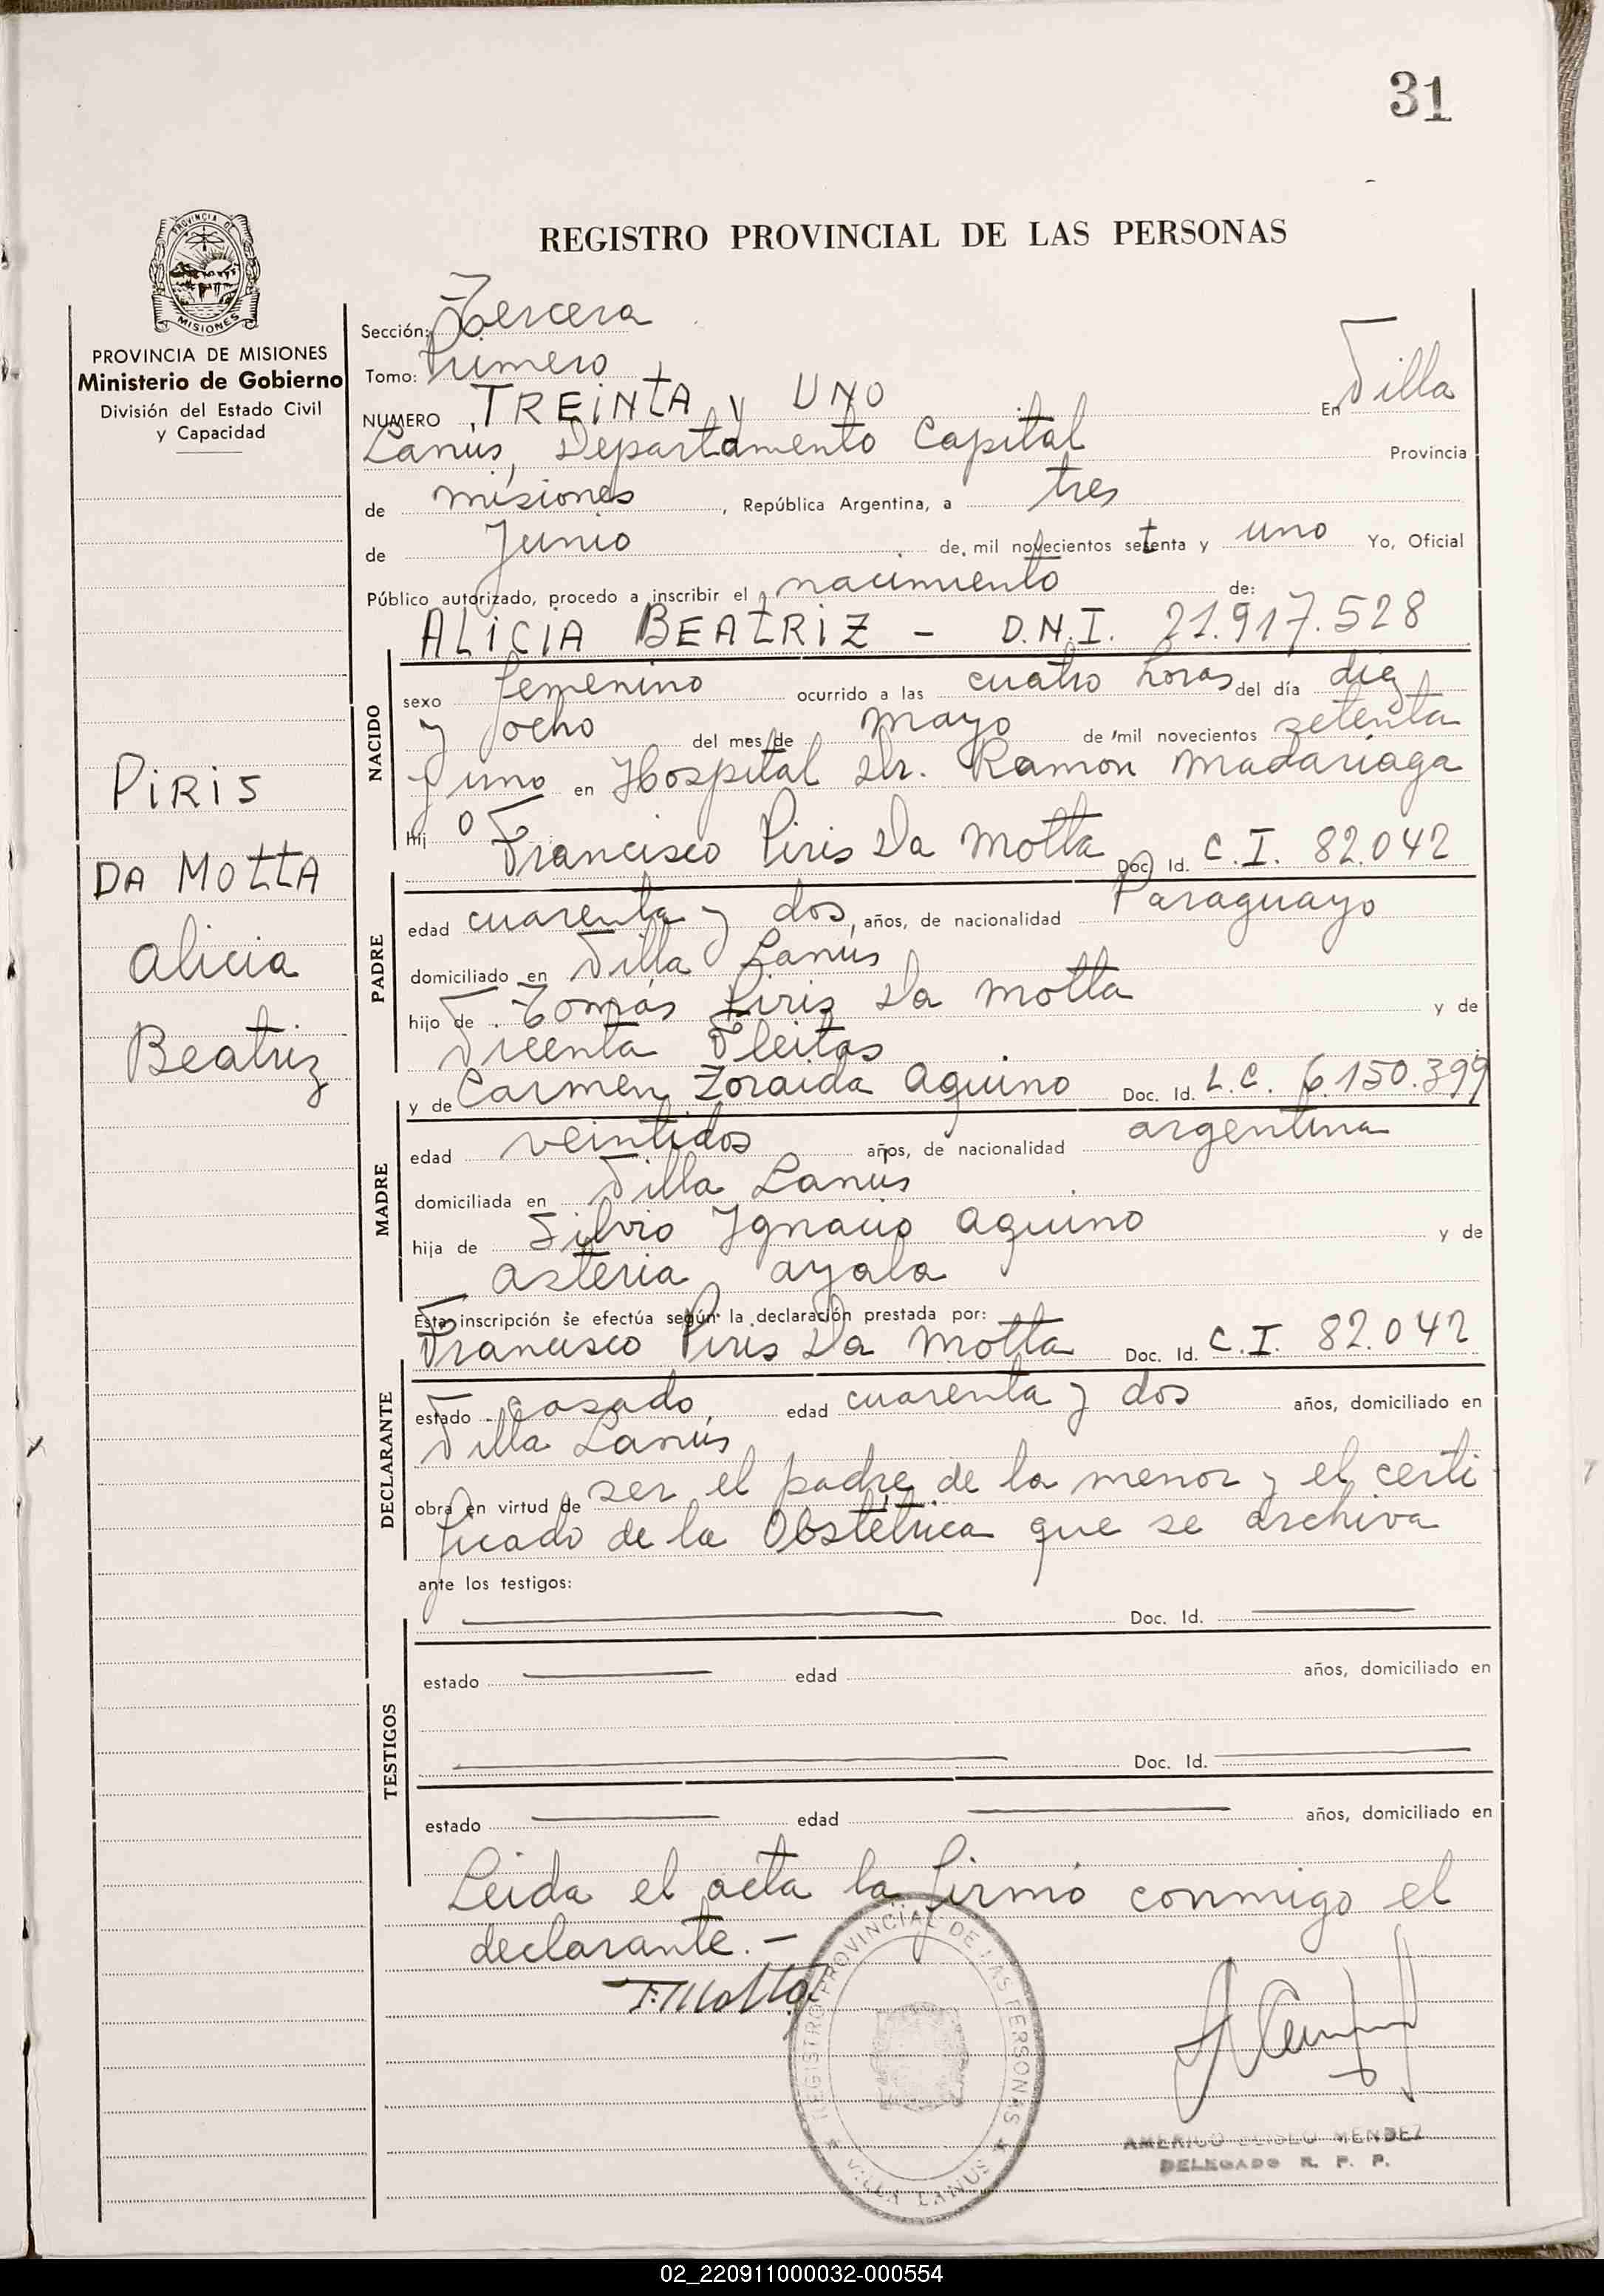 31
REGISTRO PROVINCIAL DE LAS PERSONAS
PROVINCIA DE MISIONES
PROVINCIA DE MISIONES
Ministerio de Gobierno
División del Estado Civil
y Capacidad
PIRIS
DA MOTTA
Alicia
Beatriz
Sección: Tercera
Tomo: Primero
NUMERO TREINTA y UNO En Villa
Lanús, Departamento Capital Provincia
de misiones, República Argentina, a tres
de Junio de mil novecientos setenta y uno Yo, Oficial
Público autorizado, procedo a inscribir el nacimiento de:
ALICIA BEATRIZ - D.N.I. 21.917.528
NACIDO
sexo femenino ocurrido a las cuatro horas del día diez
y ocho del mes de mayo de mil novecientos setenta
y uno en Hospital Dr. Ramon Madariaga
hij o Francisco Piris Da Motta Doc. Id. C.I. 82.042
PADRE
edad cuarenta y dos, años, de nacionalidad Paraguayo
domiciliado en Villa Lanús
hijo de Tomás Piris Da Motta y de
Vicenta Fleitas
y de Carmen Zoraida Aquino Doc. Id. L.C. 6.150.399
MADRE
edad veintidos años, de nacionalidad argentina
domiciliada en Villa Lanús
hija de Silvio Ignacio Aquino y de
Asteria Ayala
Esta inscripción se efectúa según la declaración prestada por:
Francisco Piris Da Motta Doc. Id. C.I. 82.042
DECLARANTE
estado casado, edad cuarenta y dos años, domiciliado en
Villa Lanús
obra en virtud de ser el padre de la menor y el certi
ficado de la Obstétrica que se archiva
ante los testigos:
Doc. Id.
TESTIGOS
estado edad años, domiciliado en
Doc. Id.
estado edad años, domiciliado en
Leida el acta la firmó conmigo el
declarante.-
F. Motta
REGISTRO PROVINCIAL DE LAS PERSONAS
VILLA LANUS
AMERICO ELISEO MENDEZ
DELEGADO R. P. P.
02_220911000032-000554